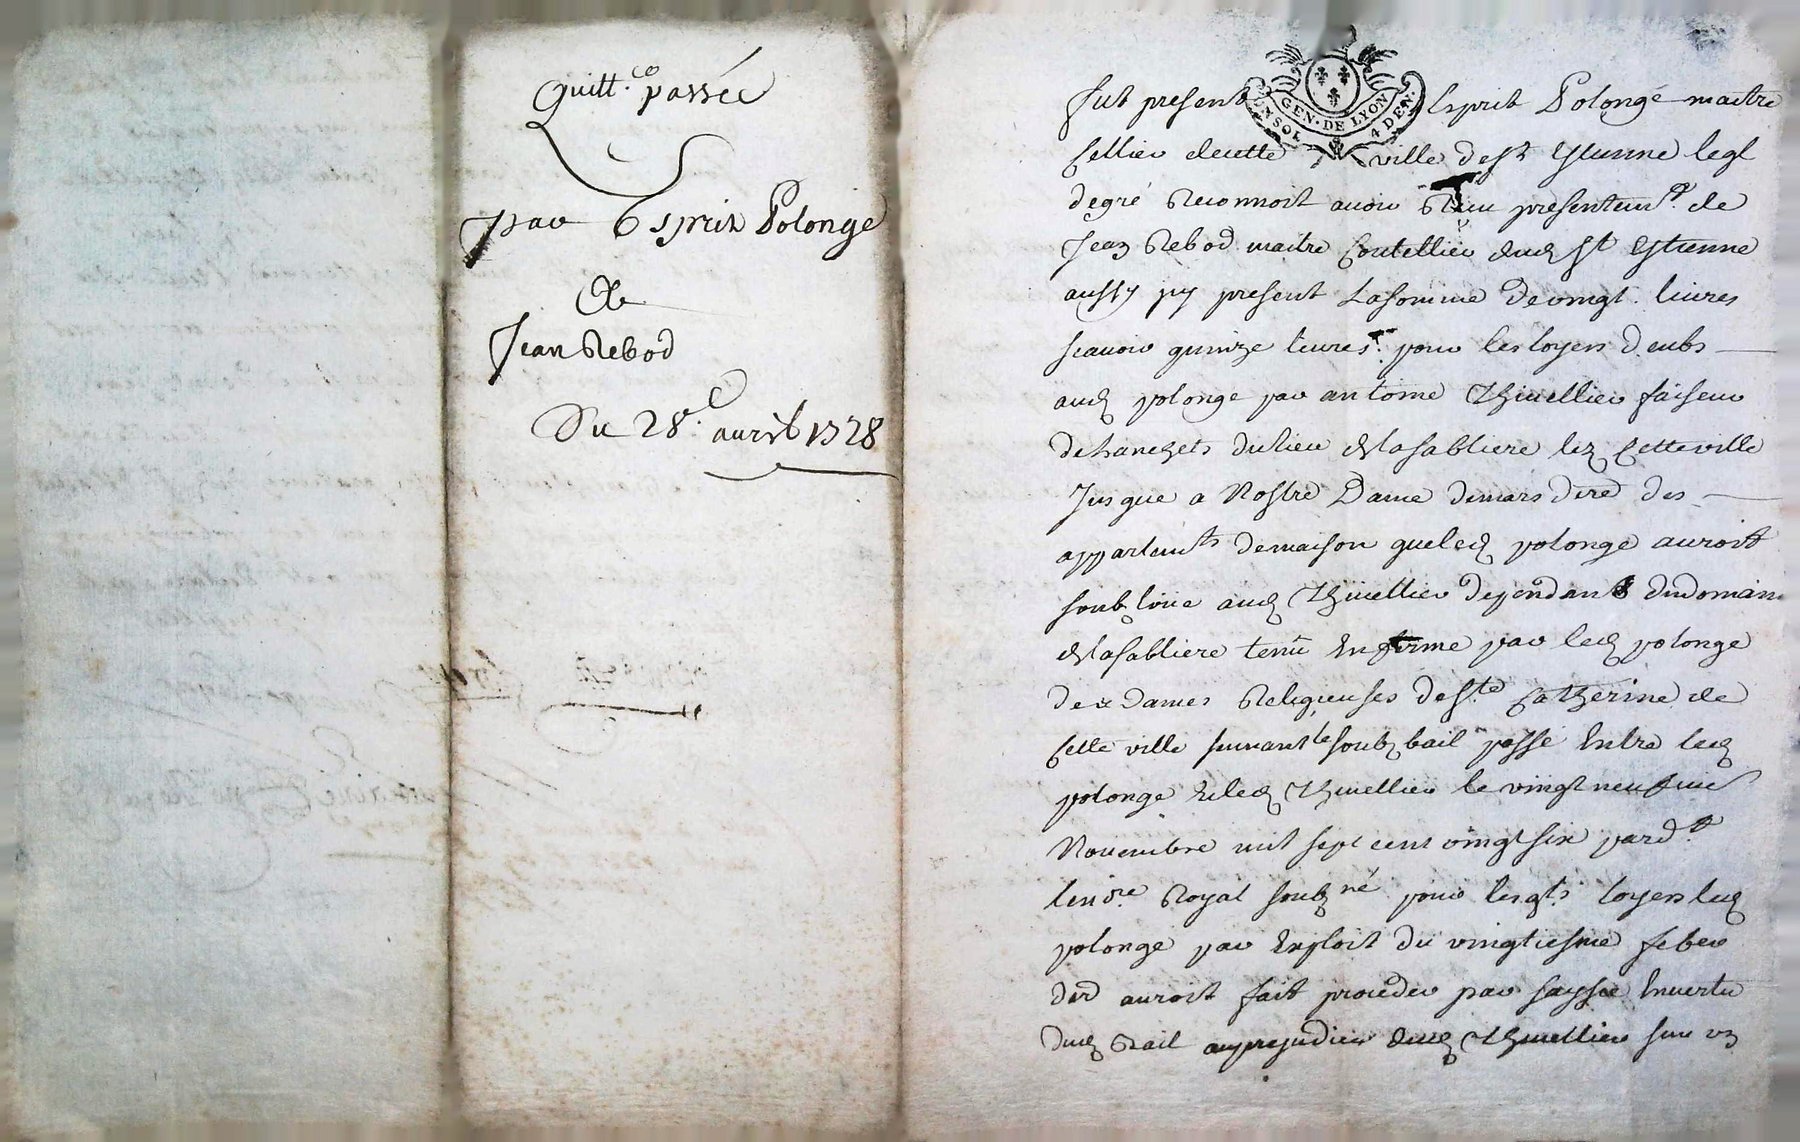 Quitt.ce passée
par Esprit Polonge
De
Jean Rebod
Du 28.e auril 1728
GEN · DE LYON
4 DEN.
fut present Esprit Polongé maitre
sellier decette ville de St Estienne leql
degré Reconnoit auoir Receu presentemt. de
Jean Rebod maitre Coutellier dud St Estienne
aussy py present La somme de vingt liures
scauoir quinze liures pour les loyers deubs
aud polonge par antoine Thiuellier faiseur
dehanchets du lieu de la sabliere lez Cette ville
Jusque a Nostre Dame de mars der des
appartemts de maison que led polonge auroit
soub loüe aud Thiuellier dependant du domaine
de la sabliere tenu En ferme par led polonge
des Dames Religieuses de Ste Catherine de
Cette ville suiuant le soub bail passé Entre led
polonge et led Thiuellier le vingt neufuie
Nouembre mil sept cent vingt six pard.t
le nore Royal soub né pour lesqts loyers led
polonge par Exploit du vingtiesme feber
der auroit fait proceder par saysie En vertu
dud Bail au prejudice dud Thiuellier sur vn